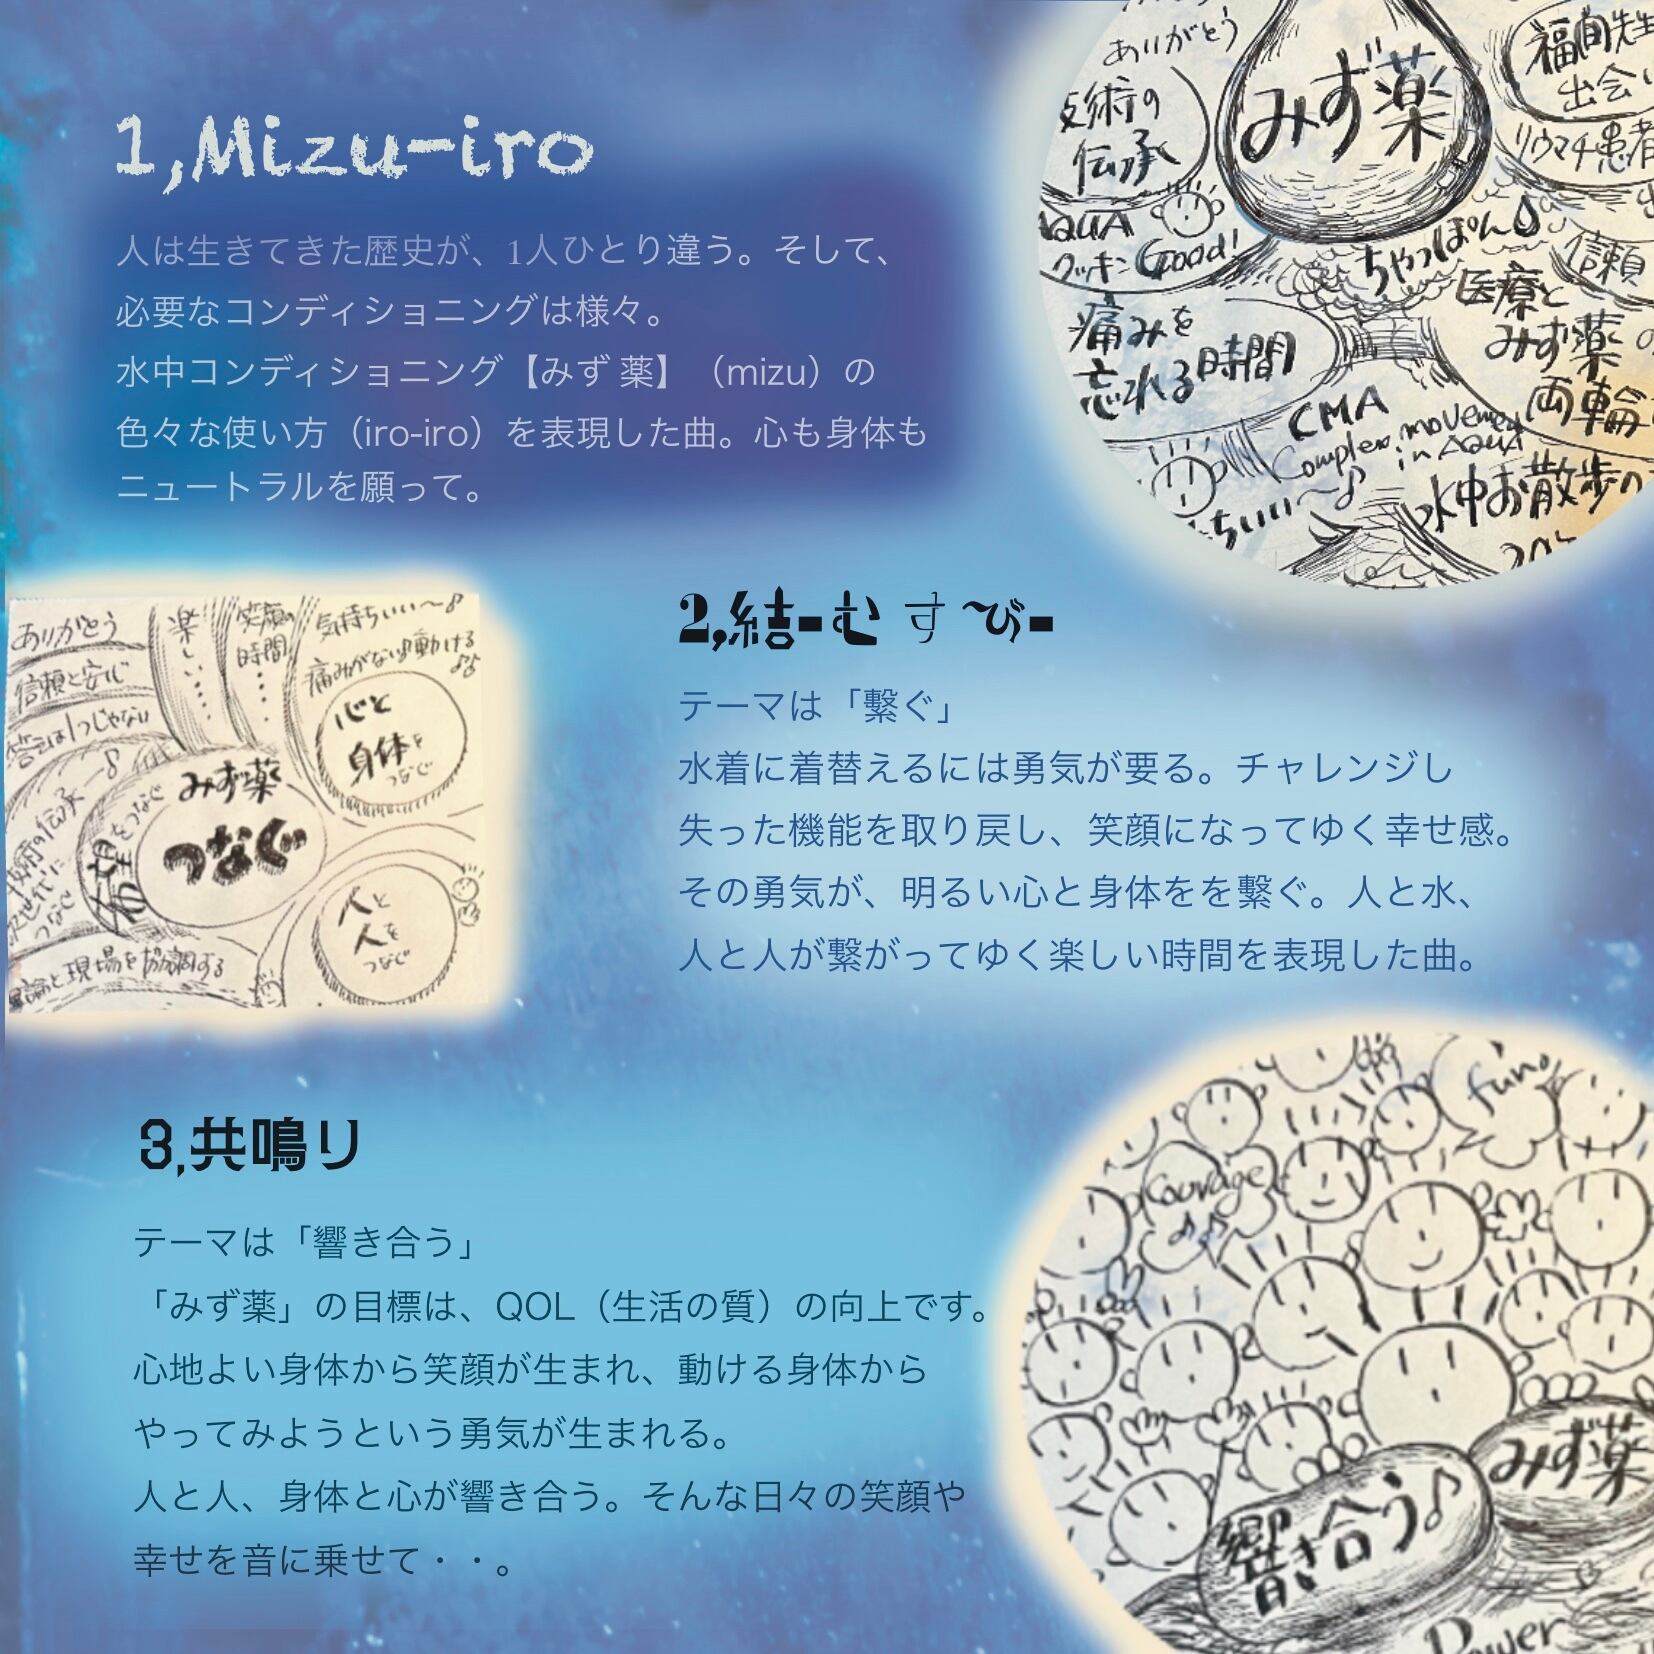 1,Mizu-iro
人は生きてきた歴史が、1人ひとり違う。そして、
必要なコンディショニングは様々。
水中コンディショニング【みず 薬】（mizu）の
色々な使い方（iro-iro）を表現した曲。心も身体も
ニュートラルを願って。
ありがとう
技術の
伝承
みず薬
出会い
リウマチ患者
AQUA
クッキン Good!
ちゃっぽん
信頼
医療と
みず薬の
両輪
痛みを
忘れる時間
CMA
Complex movement
in AQUA
水中お散歩の
2,結-むすび-
テーマは「繋ぐ」
水着に着替えるには勇気が要る。チャレンジし
失った機能を取り戻し、笑顔になってゆく幸せ感。
その勇気が、明るい心と身体をを繋ぐ。人と水、
人と人が繋がってゆく楽しい時間を表現した曲。
ありがとう
信頼と安心
答えは1つじゃない
楽しい・・・・
笑顔の
時間・・・・
気持ちいい〜♪
痛みがない♪動ける
♪♪
心と
身体を
つなぐ
みず薬
つなぐ
希望をつなぐ
技術の伝承
次世代に
つなぐ
人と
人を
つなぐ
理論と現場を協調する
3,共鳴り
テーマは「響き合う」
「みず薬」の目標は、QOL（生活の質）の向上です。
心地よい身体から笑顔が生まれ、動ける身体から
やってみようという勇気が生まれる。
人と人、身体と心が響き合う。そんな日々の笑顔や
幸せを音に乗せて・・。
Courage
♪♪
みず薬
響き合う♪
Power